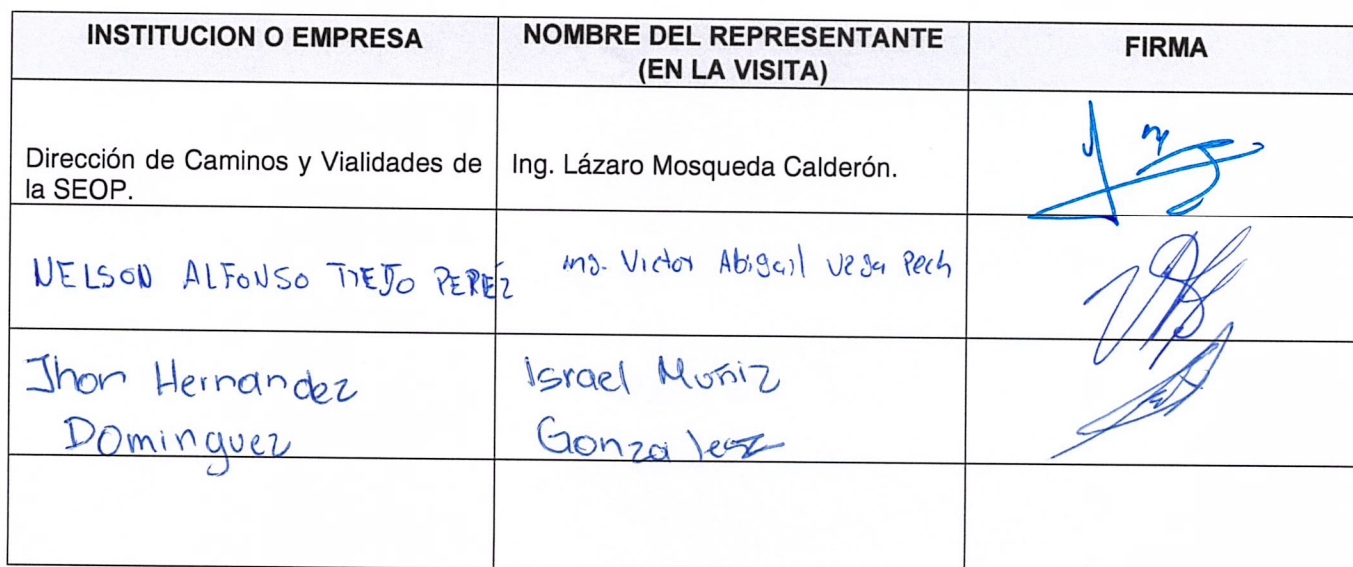 INSTITUCION O EMPRESA
NOMBRE DEL REPRESENTANTE
(EN LA VISITA)
FIRMA
Dirección de Caminos y Vialidades de
la SEOP.
Ing. Lázaro Mosqueda Calderón.
NELSON ALFONSO TREJO PEREZ
ing. Victor Abigail Vega Pech
Jhon Hernandez
Dominguez
Israel Muñiz
Gonzalez